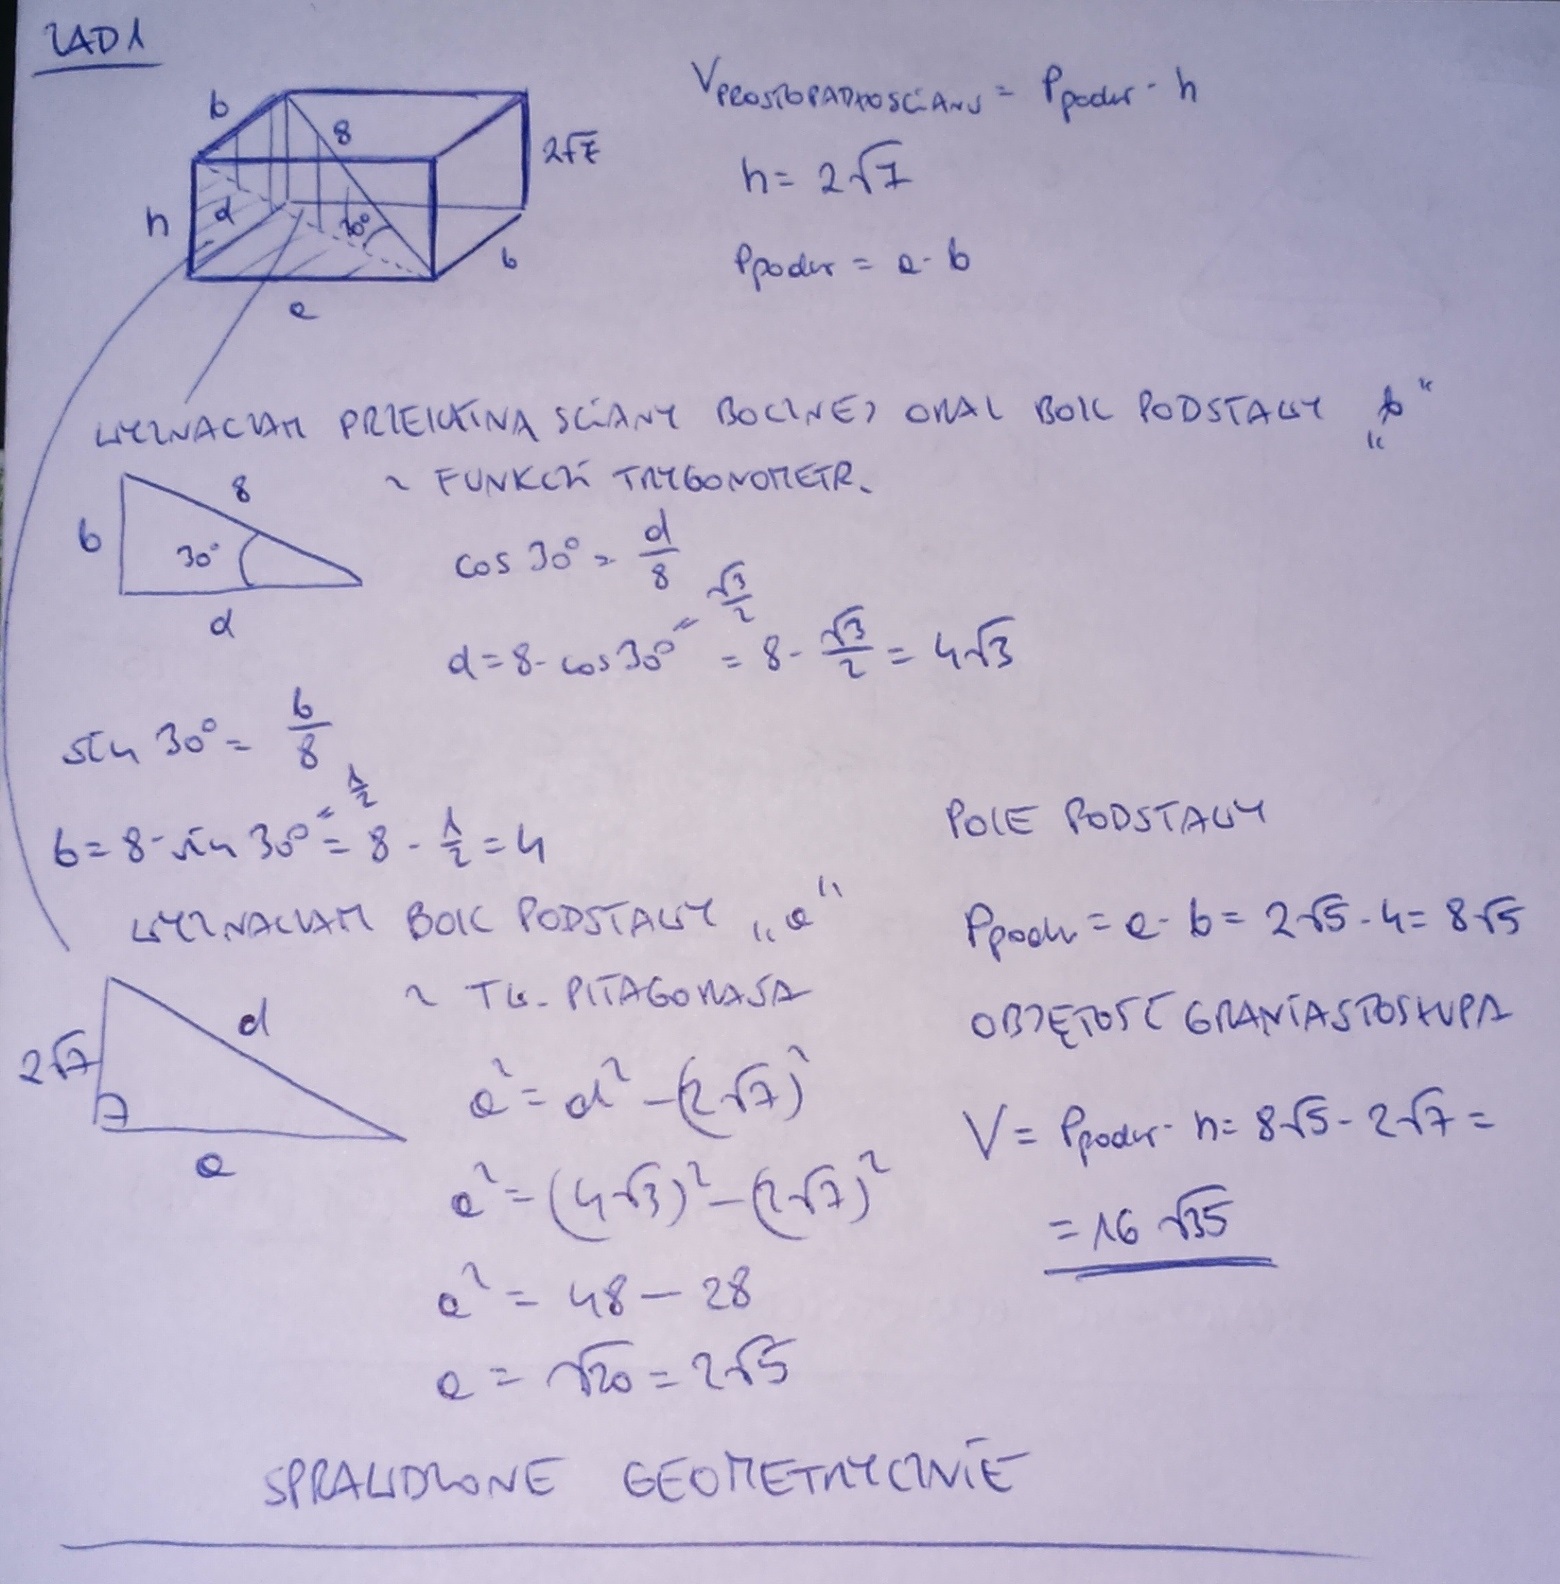 ZAD1
b
8
2√7
h
d
30°
b
a
V PROSTOPADŁOŚCIANU = Ppodst · h
h = 2√7
Ppodst = a · b
WYZNACZAM PRZEKĄTNĄ ŚCIANY BOCZNEJ ORAZ BOK PODSTAWY „b"
z FUNKCJI TRYGONOMETR.
8
b
30°
d
cos 30° = d/8
d = 8 · cos 30° = √3/2 = 8 · √3/2 = 4√3
sin 30° = b/8
b = 8 · sin 30° = 1/2 = 8 · 1/2 = 4
WYZNACZAM BOK PODSTAWY „a"
z TW. PITAGORASA
2√7
d
a
a² = d² - (2√7)²
a² = (4√3)² - (2√7)²
a² = 48 - 28
a = √20 = 2√5
POLE PODSTAWY
Ppodst = a · b = 2√5 · 4 = 8√5
OBJĘTOŚĆ GRANIASTOSŁUPA
V = Ppodst · h = 8√5 · 2√7 =
= 16√35
SPRAWDZONE GEOMETRYCZNIE